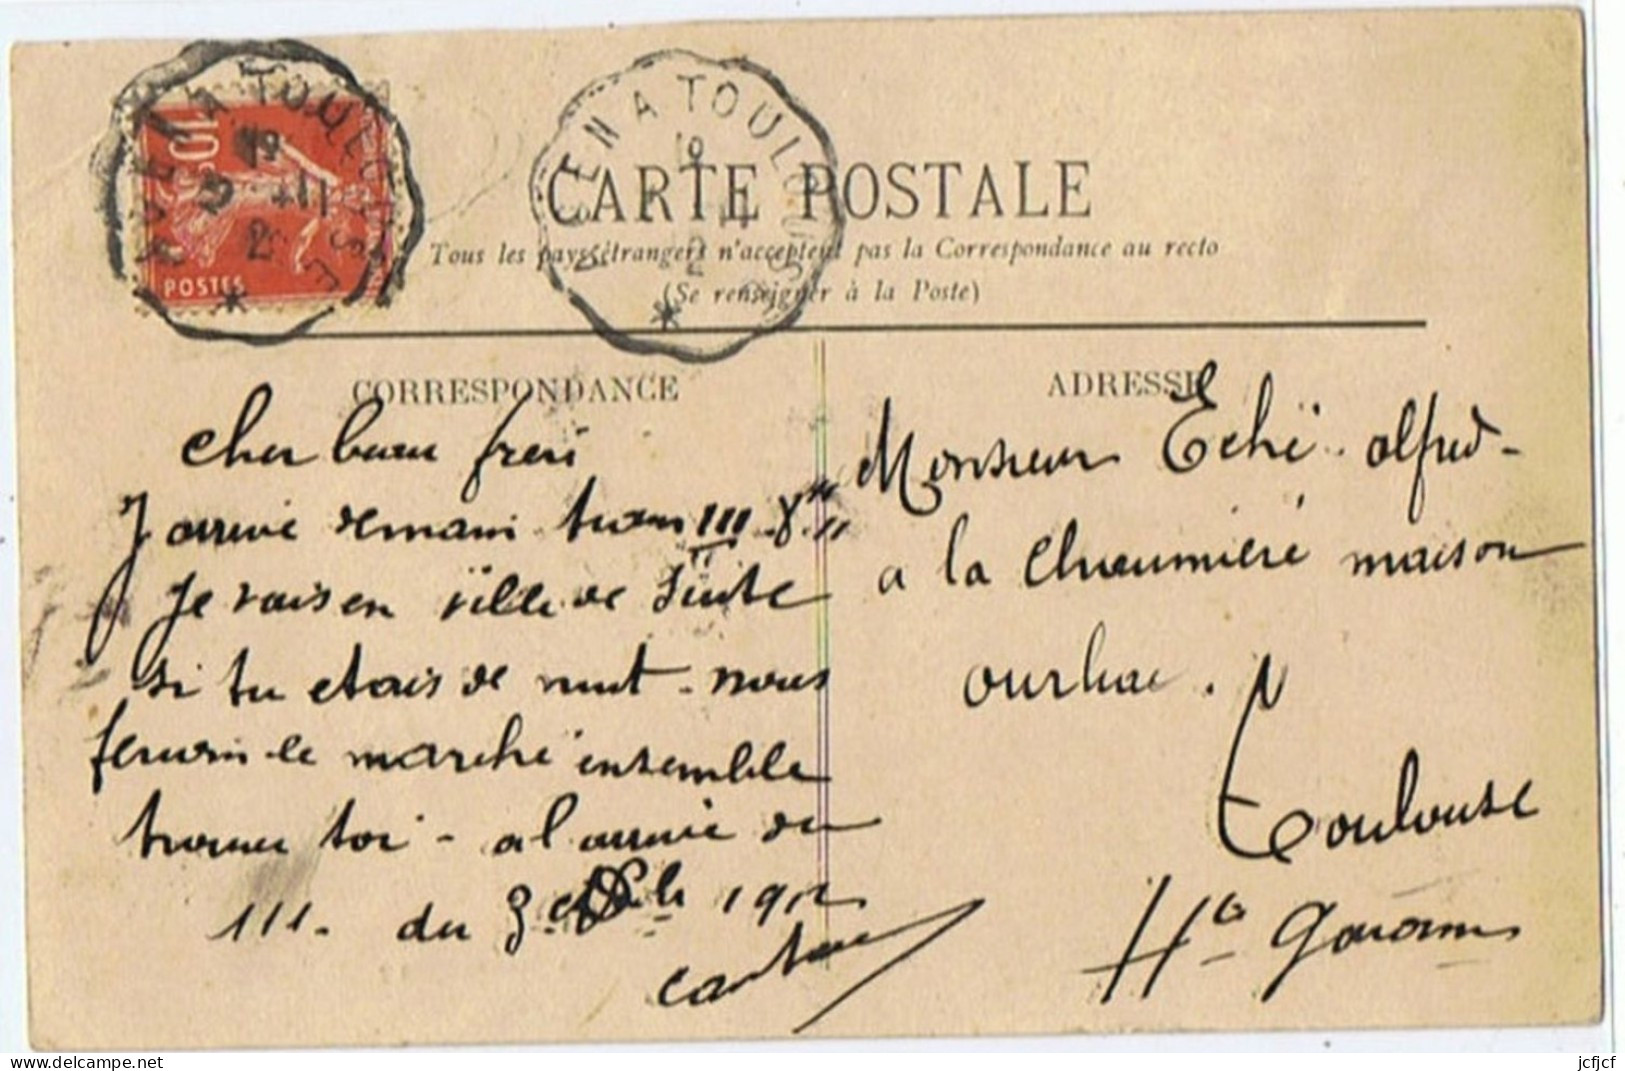 10
POSTES
A TOULOUSE
EN A TOULOUSE
CARTE POSTALE
Tous les pays étrangers n'acceptent pas la Correspondance au recto
(Se renseigner à la Poste)
CORRESPONDANCE
cher beau frere
J arrive demain train III
je vais en ville de suite
si tu etais de nuit - nous
ferions le marché ensemble
trouve toi - a l arrivée du
111 - du 3 1912
ADRESSE
Monsieur Eché alfred -
a la Chaumière maison
Toulouse
Hte Garonne
jcfjcf